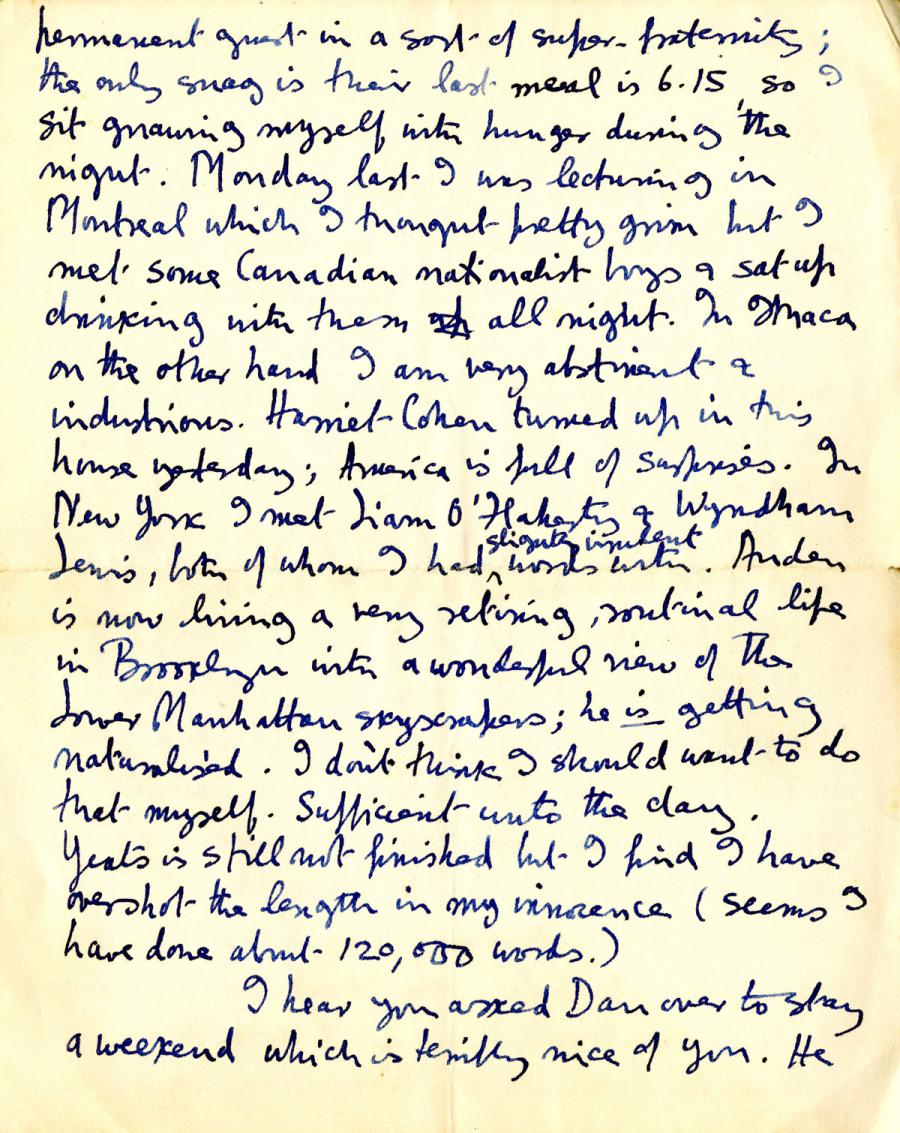 permanent guest in a sort of super-fraternity;
the only snag is their last meal is 6.15, so I
sit gnawing myself with hunger during the
night. Monday last I was lecturing in
Montreal which I thought pretty grim but I
met some Canadian nationalist boys & sat up
drinking with them all night. In Ithaca
on the other hand I am very abstinent &
industrious. Harriet Cohen turned up in this
house yesterday; America is full of surprises. In
New York I met Liam O'Flaherty & Wyndham
slightly insolent
Lewis, both of whom I had words with. Auden
is now living a very retiring, routinal life
in Brooklyn with a wonderful view of the
Lower Manhattan skyscrapers; he is getting
naturalised. I don't think I should want to do
that myself. Sufficient unto the day.
Yeats is still not finished but I find I have
overshot the length in my innocence (seems I
have done about 120,000 words.)
I hear you asked Dan over to stay
a weekend which is terribly nice of you. He